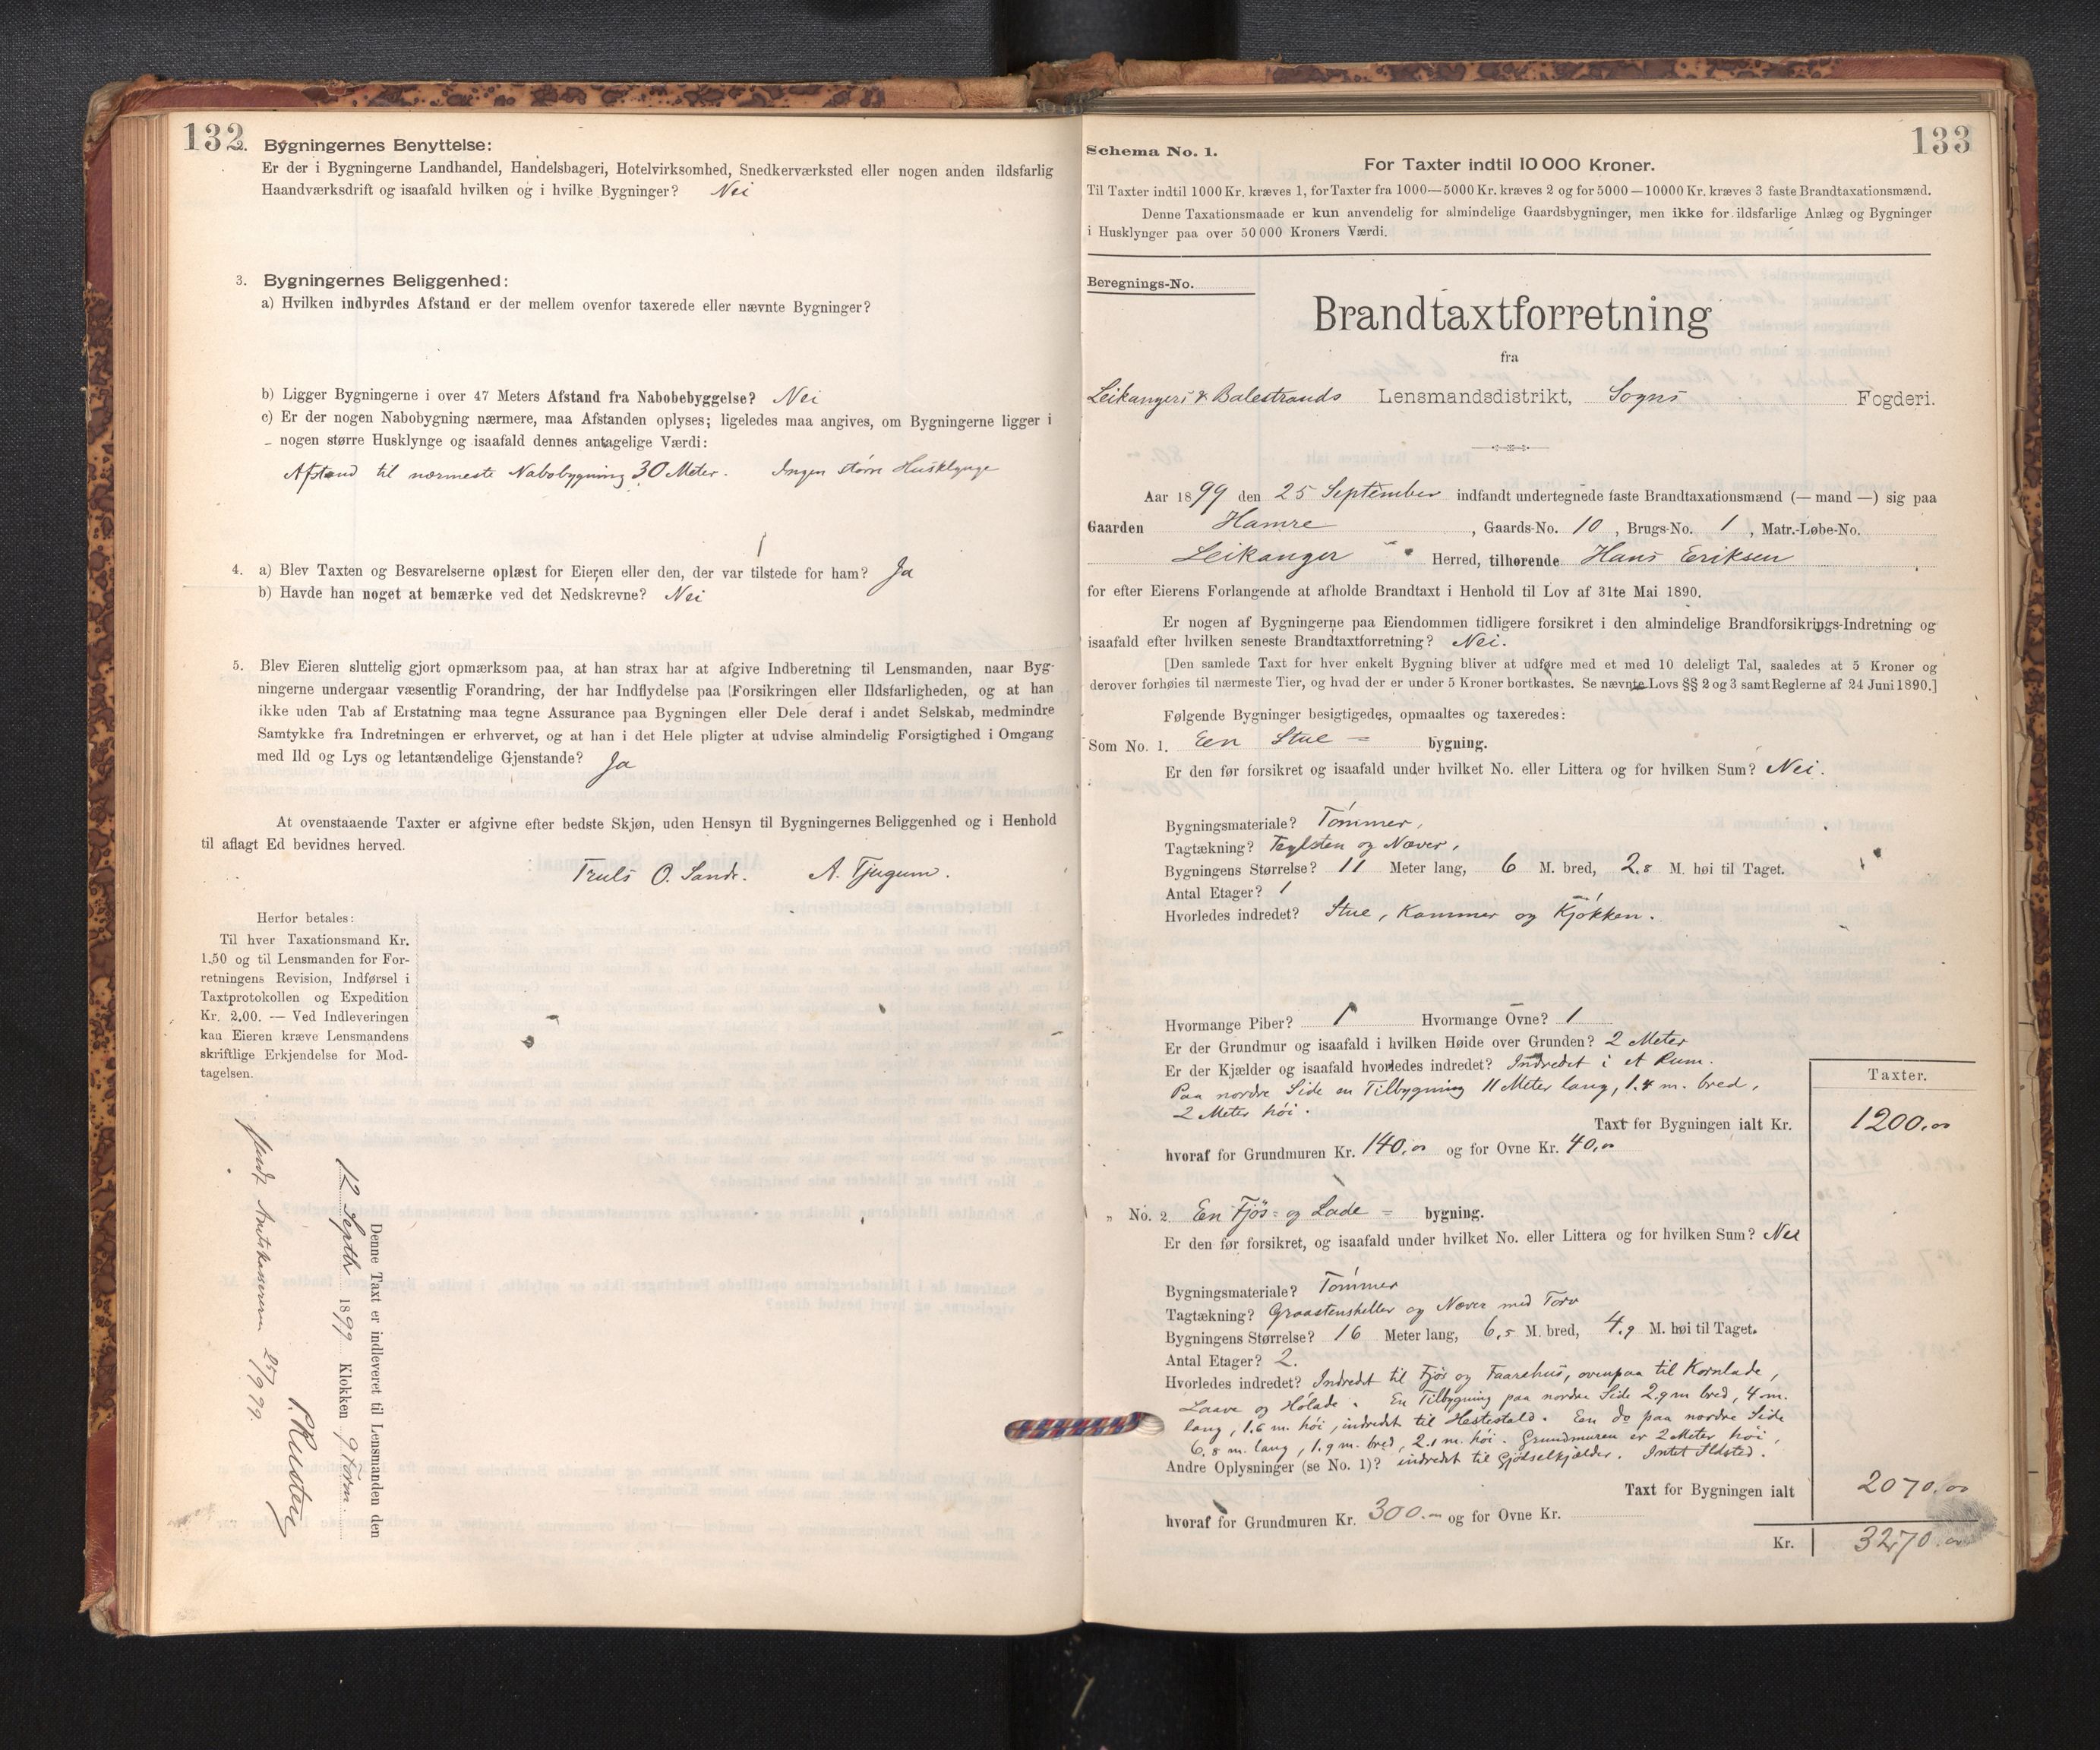 132
2. Bygningernes Benyttelse:
Er der i Bygningerne Landhandel, Handelsbageri, Hotelvirksomhed, Snedkerværksted eller nogen anden ildsfarlig
Haandværksdrift og isaafald hvilken og i hvilke Bygninger? Nei
3. Bygningernes Beliggenhed:
a) Hvilken indbyrdes Afstand er der mellem ovenfor taxerede eller nævnte Bygninger?
b) Ligger Bygningerne i over 47 Meters Afstand fra Nabobebyggelse? Nei
c) Er der nogen Nabobygning nærmere, maa Afstanden oplyses; ligeledes maa angives, om Bygningerne ligger i
nogen større Husklynge og isaafald dennes antagelige Værdi:
Afstand til nærmeste Nabobygning 30 Meter. Ingen større Husklynge
4. a) Blev Taxten og Besvarelserne oplæst for Eieren eller den, der var tilstede for ham? Ja
b) Havde han noget at bemærke ved det Nedskrevne? Nei
5. Blev Eieren sluttelig gjort opmærksom paa, at han strax har at afgive Indberetning til Lensmanden, naar Byg-
ningerne undergaar væsentlig Forandring, der har Indflydelse paa Forsikringen eller Ildsfarligheden, og at han
ikke uden Tab af Erstatning maa tegne Assurance paa Bygningen eller Dele deraf i andet Selskab, medmindre
Samtykke fra Indretningen er erhvervet, og at han i det Hele pligter at udvise almindelig Forsigtighed i Omgang
med Ild og Lys og letantændelige Gjenstande? Ja
At ovenstaaende Taxter er afgivne efter bedste Skjøn, uden Hensyn til Bygningernes Beliggenhed og i Henhold
til aflagt Ed bevidnes herved.
Truls O. Sande. A. Tjugum.
Herfor betales:
Til hver Taxationsmand Kr.
1.50 og til Lensmanden for For-
retningens Revision, Indførsel i
Taxtprotokollen og Expedition
Kr. 2.00. — Ved Indleveringen
kan Eieren kræve Lensmandens
skriftlige Erkjendelse for Mod-
tagelsen.
Denne Taxt er indleveret til Lensmanden den
12 Septbr 1899 Klokken 9 Form.
Sendt Amtskassereren 25/9 99.
133
Schema No. 1.
For Taxter indtil 10 000 Kroner.
Til Taxter indtil 1000 Kr. kræves 1, for Taxter fra 1000—5000 Kr. kræves 2 og for 5000—10000 Kr. kræves 3 faste Brandtaxationsmænd.
Denne Taxationsmaade er kun anvendelig for almindelige Gaardsbygninger, men ikke for ildsfarlige Anlæg og Bygninger
i Husklynger paa over 50 000 Kroners Værdi.
Beregnings-No.
Brandtaxtforretning
fra
Leikangers & Balestrands Lensmandsdistrikt, Sogns Fogderi.
Aar 1899 den 25 September indfandt undertegnede faste Brandtaxationsmænd (— mand —) sig paa
Gaarden Hamre, Gaards-No. 10, Brugs-No. 1, Matr.-Løbe-No.
Leikanger Herred, tilhørende Hans Eriksen
for efter Eierens Forlangende at afholde Brandtaxt i Henhold til Lov af 31te Mai 1890.
Er nogen af Bygningerne paa Eiendommen tidligere forsikret i den almindelige Brandforsikrings-Indretning og
isaafald efter hvilken seneste Brandtaxtforretning? Nei.
[Den samlede Taxt for hver enkelt Bygning bliver at udføre med et med 10 deleligt Tal, saaledes at 5 Kroner og
derover forhøies til nærmeste Tier, og hvad der er under 5 Kroner bortkastes. Se nævnte Lovs §§ 2 og 3 samt Reglerne af 24 Juni 1890.]
Følgende Bygninger besigtigedes, opmaaltes og taxeredes:
Som No. 1. Een Stue = bygning.
Er den før forsikret og isaafald under hvilket No. eller Littera og for hvilken Sum? Nei.
Bygningsmateriale? Tømmer,
Tagtækning? Teglsten og Næver,
Bygningens Størrelse? 11 Meter lang, 6 M. bred, 2.8 M. høi til Taget.
Antal Etager? 1
Hvorledes indredet? Stue, Kammer og Kjøkken.
Hvormange Piber? 1 Hvormange Ovne? 1
Er der Grundmur og isaafald i hvilken Høide over Grunden? 2 Meter
Er der Kjælder og isaafald hvorledes indredet? Indredet i et Rum.
Paa nordre Side en Tilbygning 11 Meter lang, 1.4 m. bred,
2 Meter høi.
Taxter.
Taxt for Bygningen ialt Kr. 1200,00
hvoraf for Grundmuren Kr. 140,00 og for Ovne Kr. 40,00
„ No. 2. En Fjøs= og Lade = bygning.
Er den før forsikret, og isaafald under hvilket No. eller Littera og for hvilken Sum? Nei
Bygningsmateriale? Tømmer
Tagtækning? Graastensheller og Næver med Torv
Bygningens Størrelse? 16 Meter lang, 6,5 M. bred, 4.9 M. høi til Taget.
Antal Etager? 2.
Hvorledes indredet? Indredet til Fjøs og Faarehus, ovenpaa til Kornlade,
Laave og Hølade. En Tilbygning paa nordre Side 2,9 m bred, 4 m.
lang, 1.6 m. høi, indredet til Hestestald. En do paa nordre Side
6,8 m. lang, 1.9 m. bred, 2.1 m. høi. Grundmuren er 2 Meter høi,
Andre Oplysninger (se No. 1)? indredet til Gjødselkjælder. Intet Ildsted.
Taxt for Bygningen ialt 2070,00
hvoraf for Grundmuren Kr. 300.00 og for Ovne Kr.
Kr. 3270.00